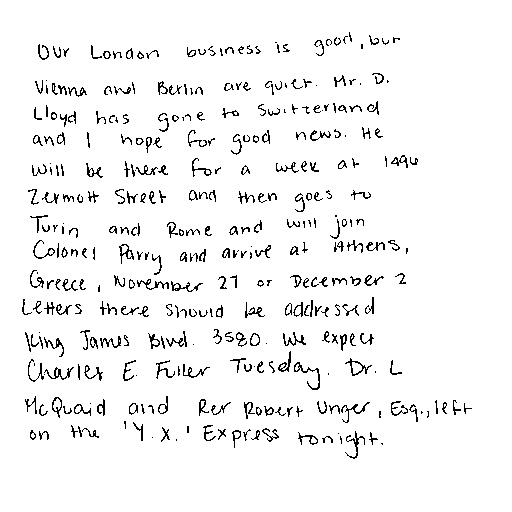 Our London business is good, but
Vienna and Berlin are quiet. Mr. D.
Lloyd has gone to Switzerland
and I hope for good news. He
will be there for a week at 1496
Zermott Street and then goes to
Turin and Rome and will join
Colonel Parry and arrive at Athens,
Greece, November 27 or December 2
Letters there should be addressed
King James Blvd. 3580. We expect
Charles E. Fuller Tuesday. Dr. L
McQuaid and Rer Robert Unger, Esq., left
on the 'Y.X.' Express tonight.